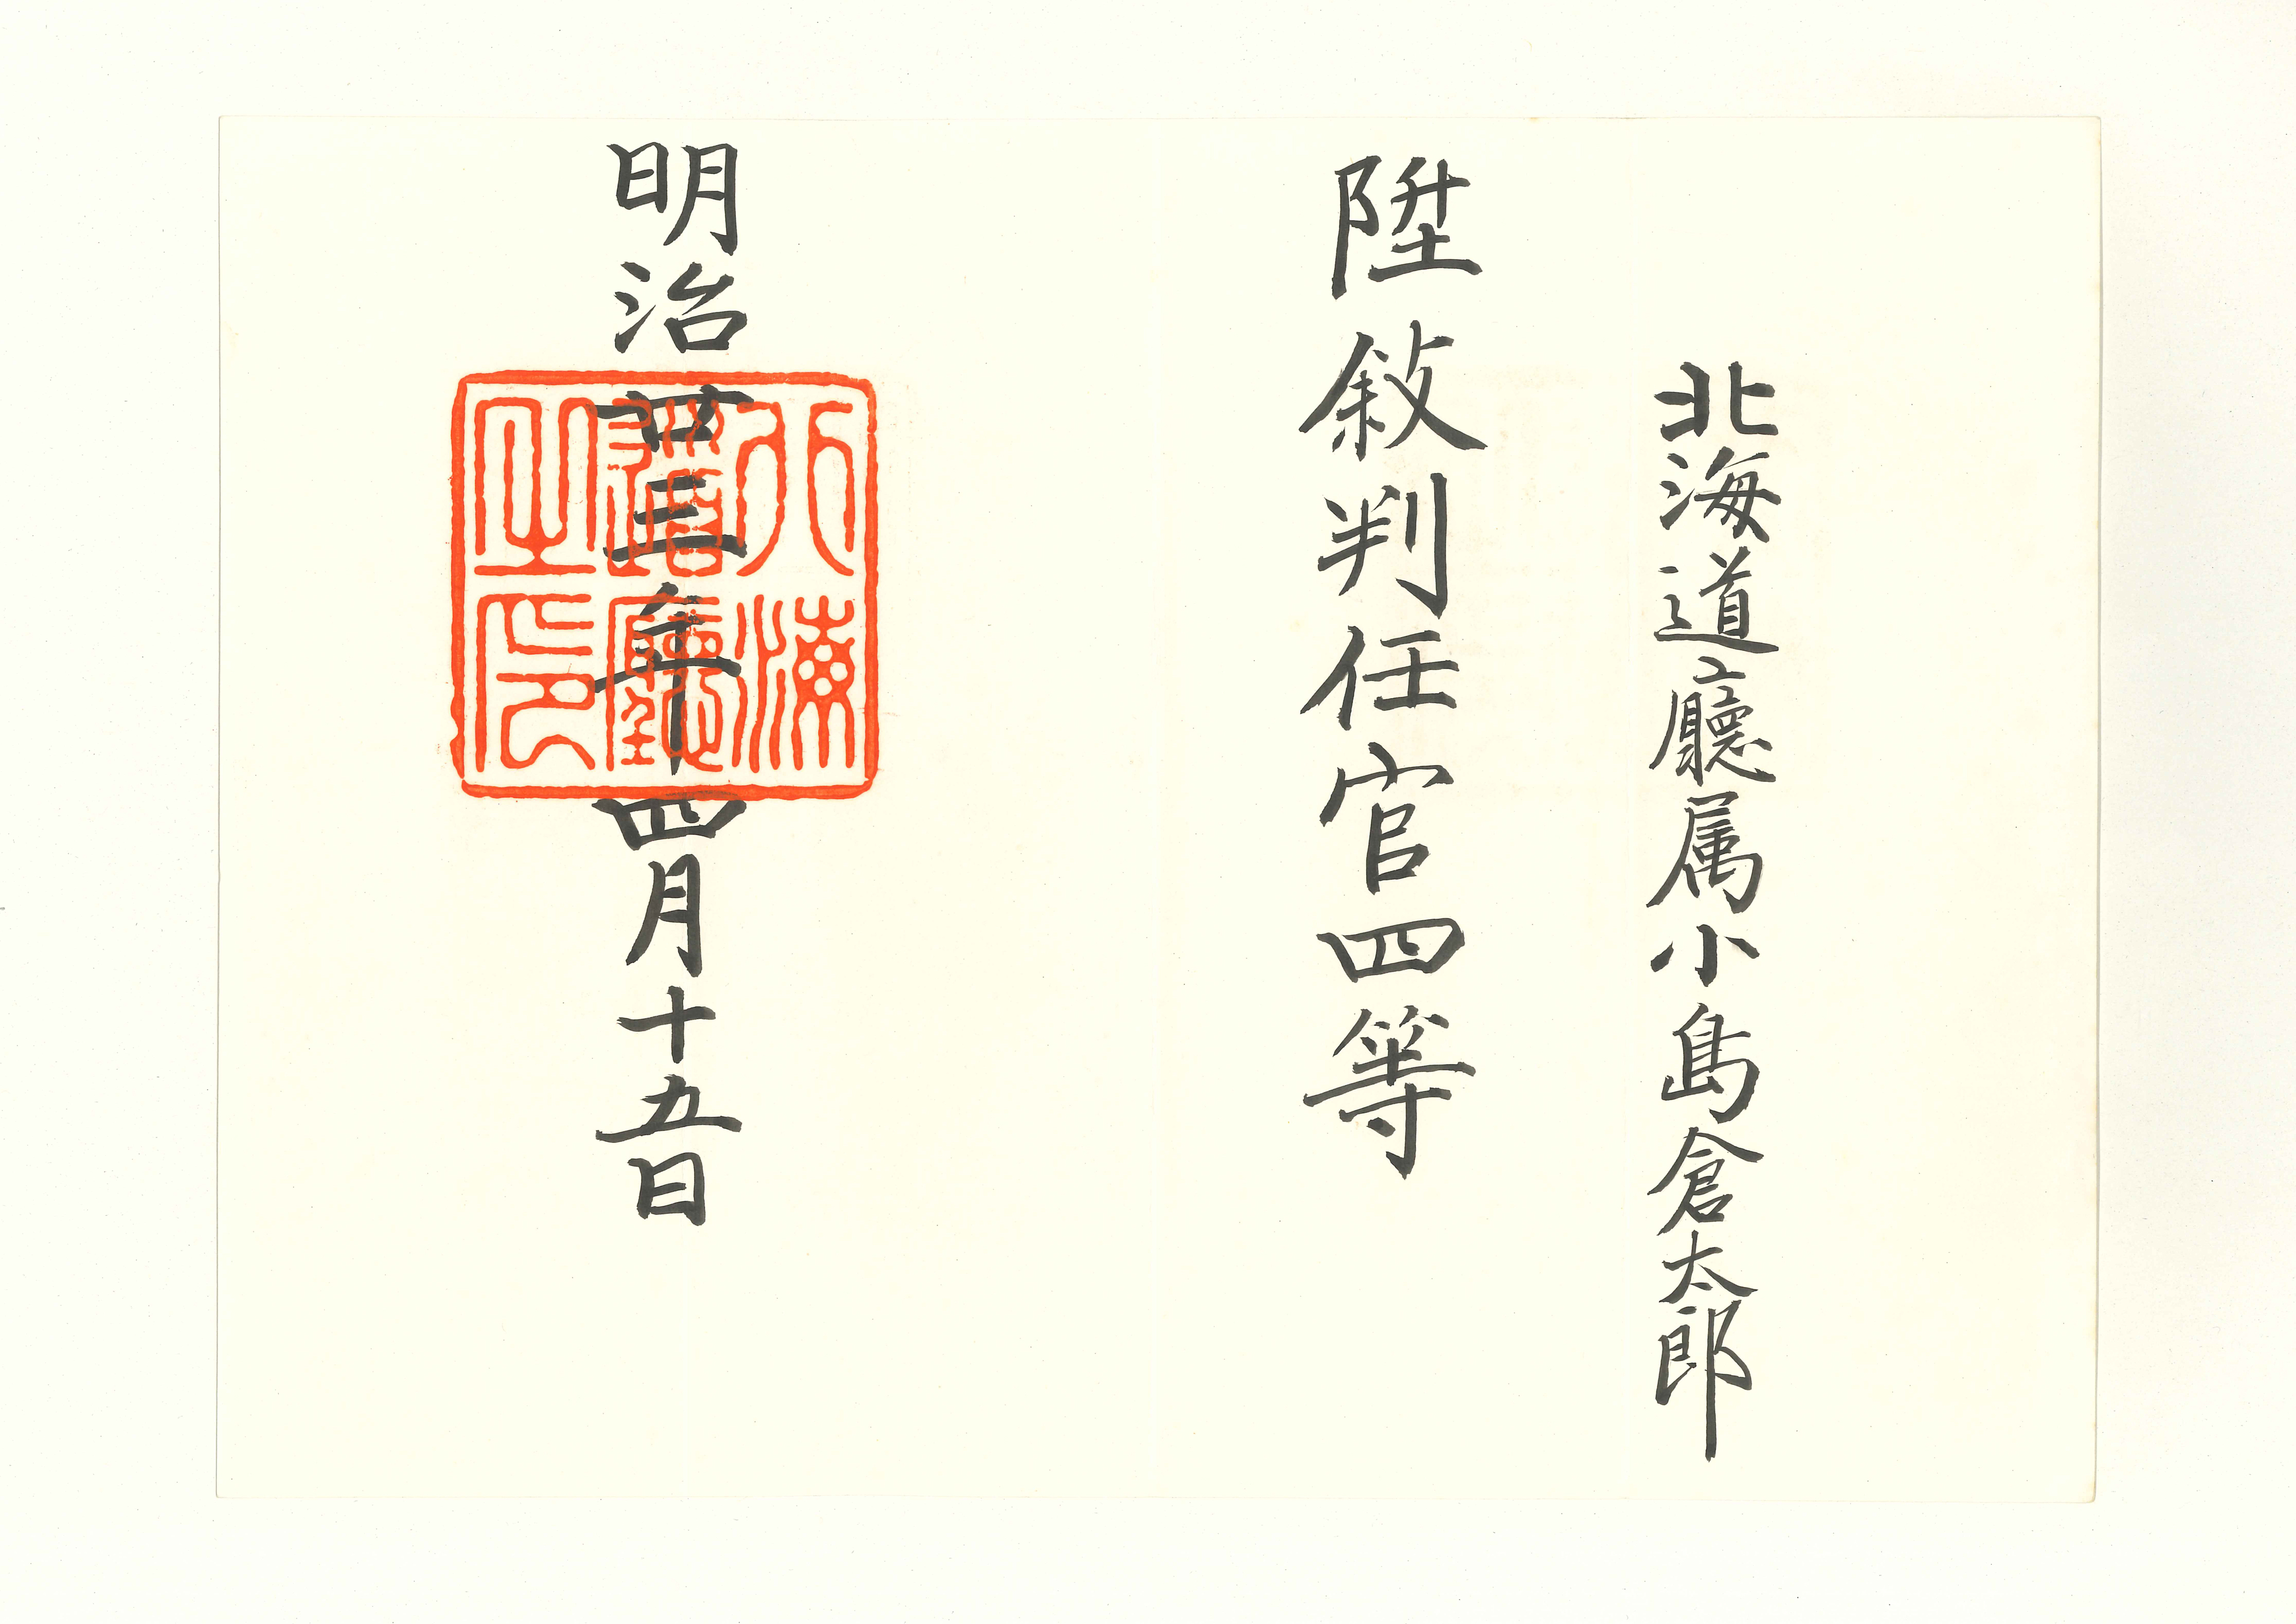 北海道廳属小島倉太郎
陞敍判任官四等
明治廿三年四月十五日
北海道廳之印